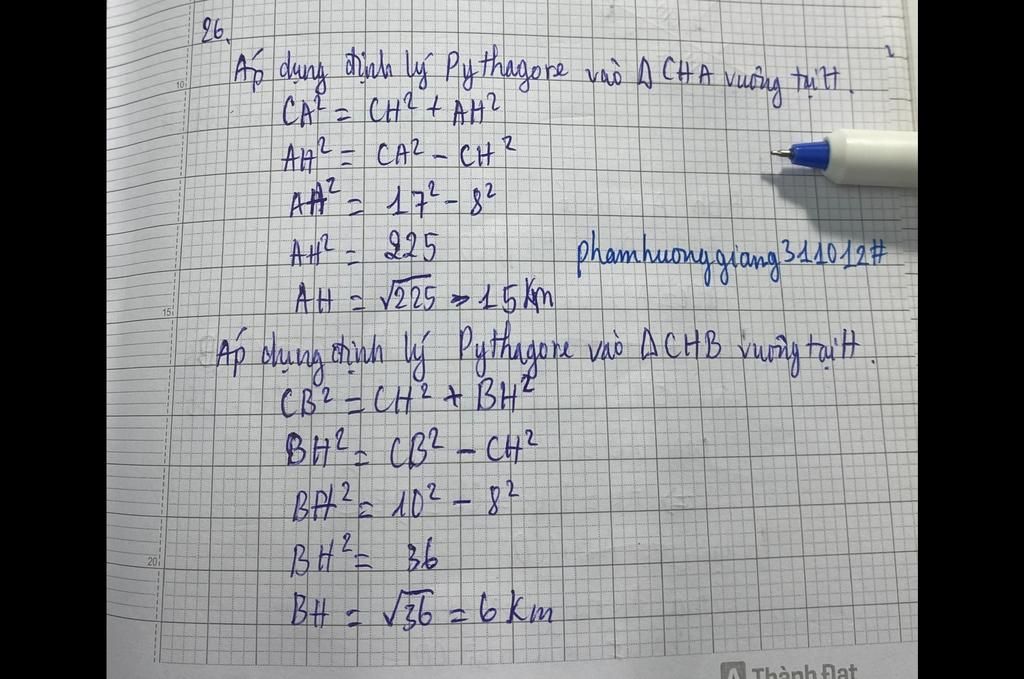 26.
Áp dụng định lý Pythagore vào Δ CHA vuông tại H.
CA² = CH² + AH²
AH² = CA² - CH²
AH² = 17² - 8²
AH² = 225
phamhuonggiang311012#
AH = √225 = 15 Km
15
Áp dụng định lý Pythagore vào Δ CHB vuông tại H.
CB² = CH² + BH²
BH² = CB² - CH²
BH² = 10² - 8²
BH² = 36
20
BH = √36 = 6 Km
Thành Đạt